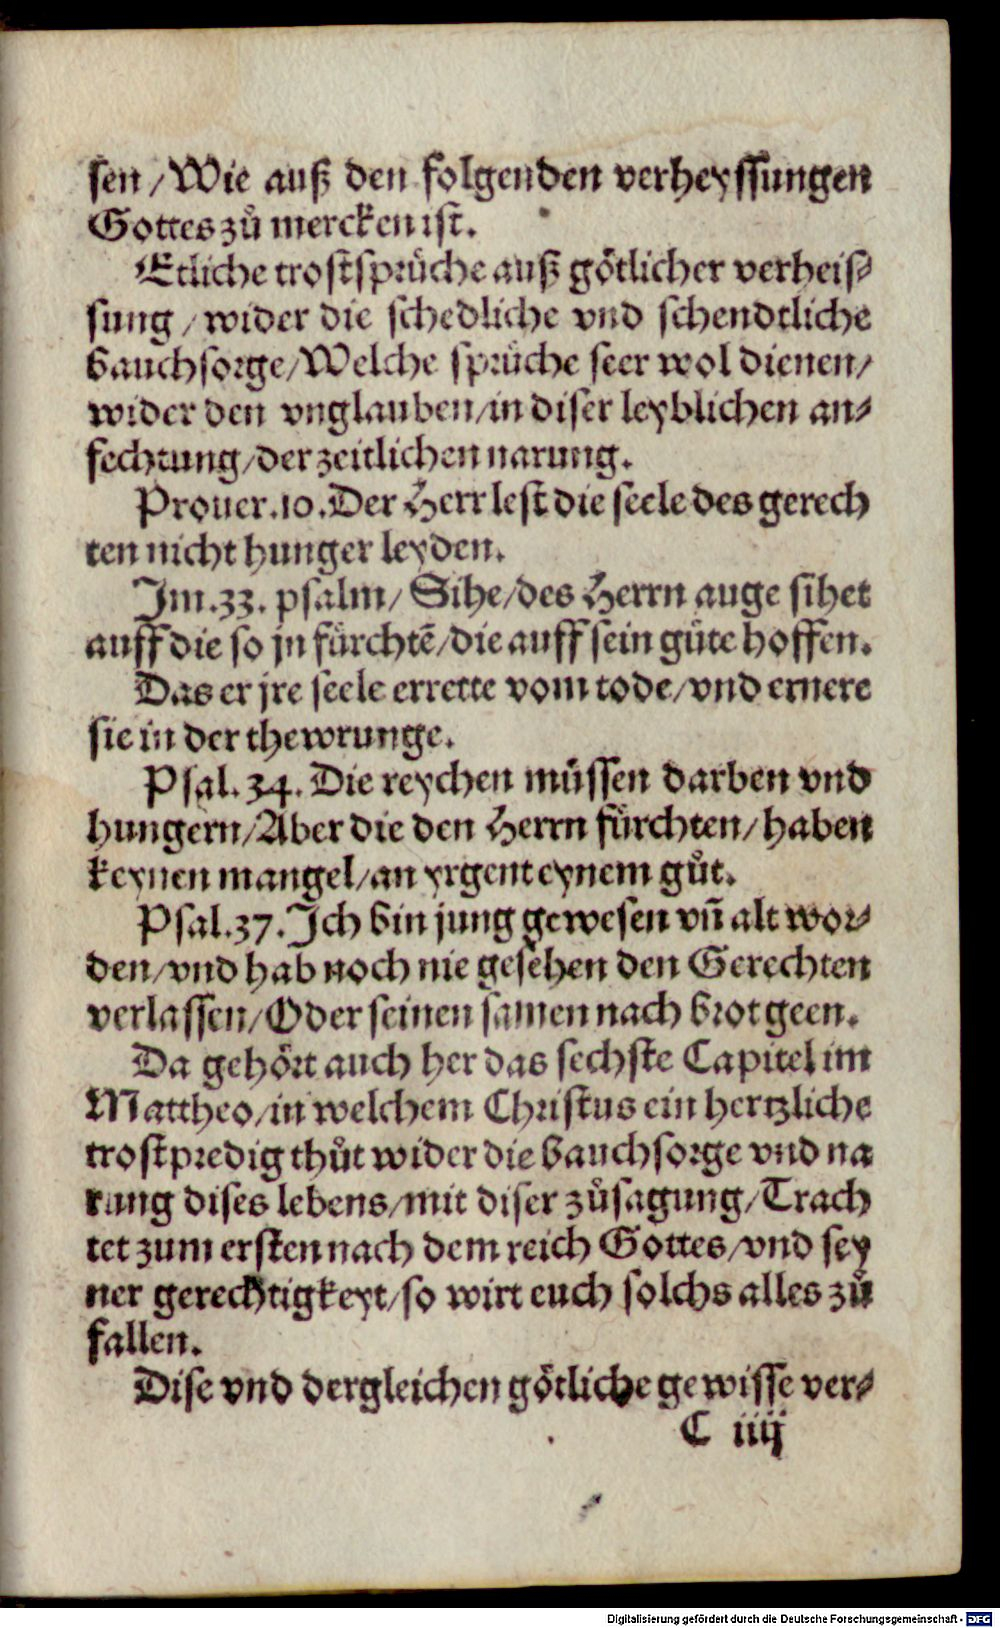 sen / Wie auß den folgenden verheyssungen
Gottes zů mercken ist.
Etliche trostsprüche auß götlicher verheis⸗
sung / wider die schedliche vnd schendtliche
bauchsorge / Welche sprüche seer wol dienen /
wider den vnglauben / in diser leyblichen an⸗
fechtung / der zeitlichen narung.
Prouer. 10. Der Herr lest die seele des gerech
ten nicht hunger leyden.
Im. 33. psalm / Sihe / des Herrn auge sihet
auff die so jn fürchtẽ / die auff sein güte hoffen.
Das er jre seele errette vom tode / vnd ernere
sie in der thewrunge.
Psal. 34. Die reychen müssen darben vnd
hungern / Aber die den Herrn fürchten / haben
keynen mangel / an yrgent eynem gůt.
Psal. 37. Ich bin jung gewesen vñ alt wor⸗
den / vnd hab noch nie gesehen den Gerechten
verlassen / Oder seinen samen nach brot geen.
Da gehört auch her das sechste Capitel im
Mattheo / in welchem Christus ein hertzliche
trostpredig thůt wider die bauchsorge vnd na
rung dises lebens / mit diser zůsagung / Trach
tet zum ersten nach dem reich Gottes / vnd sey
ner gerechtigkeyt / so wirt euch solchs alles zů
fallen.
Dise vnd dergleichen götliche gewisse ver⸗
C iiij
Digitalisierung gefördert durch die Deutsche Forschungsgemeinschaft - DFG